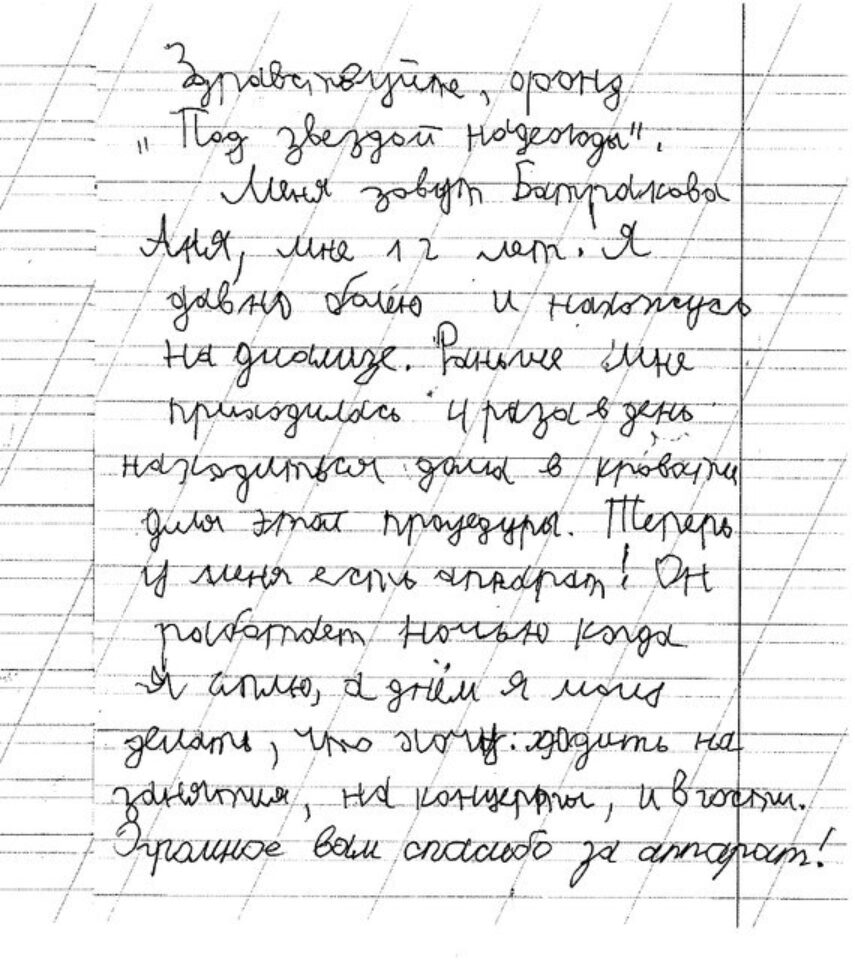 Здравствуйте, фонд
„Под звездой надежды".
Меня зовут Батракова
Аня, мне 12 лет. Я
давно болею и нахожусь
на диализе. Раньше мне
приходилось 4 раза в день
находиться дома в кровати
для этой процедуры. Теперь
у меня есть аппарат! Он
работает ночью когда
я сплю, а днём я могу
делать, что хочу: ходить на
занятия, на концерты, и в гости.
Огромное вам спасибо за аппарат!